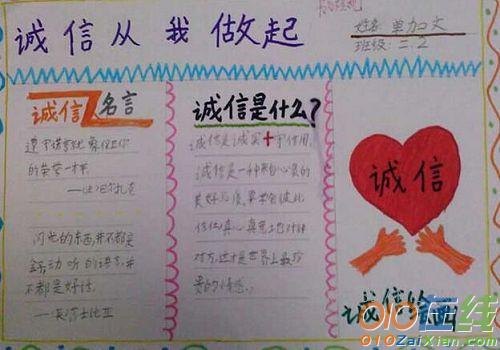 诚信从我做起
姓名:单加文
班级:二.2
诚信名言
遵守诺言就象保卫你
的荣誉一样
——巴尔扎克
闪光的东西,并不都是
金,动听的语言,并
不都是好话。
——莎士比亚
诚信是什么?
诚信是诚实+守信用,
诚信是一种来自心灵的
美好
信任,真心真意地对待
对方,这才是世界上最珍
贵的情感。
诚信
诚信绘画
010在线
010ZaiXian.com